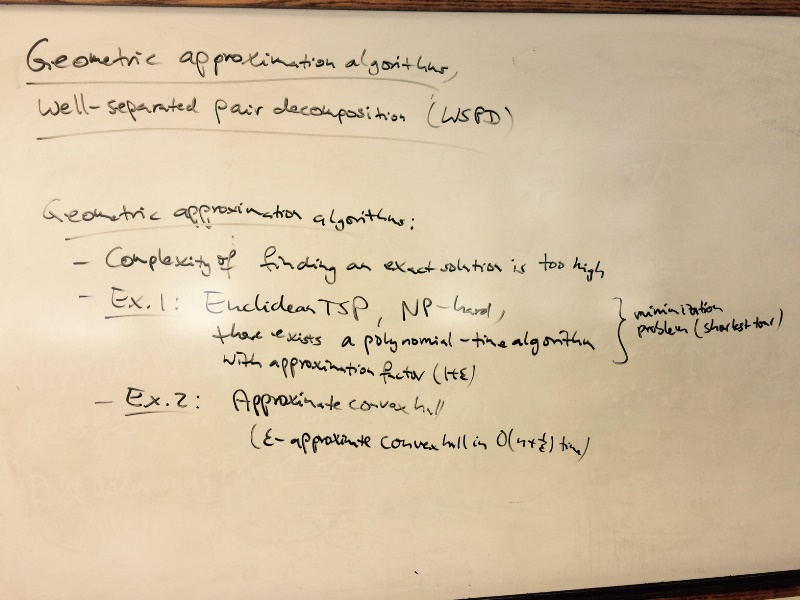 Geometric approximation algorithms,
Well-separated pair decomposition (WSPD)
Geometric approximation algorithms:
- Complexity of finding an exact solution is too high
- Ex. 1: Euclidean TSP, NP-hard,
there exists a polynomial-time algorithm
with approximation factor (1+ε)
} minimization
problem (shortest tour)
- Ex. 2: Approximate convex hull
(ε-approximate convex hull in O(n+1/ε) time)